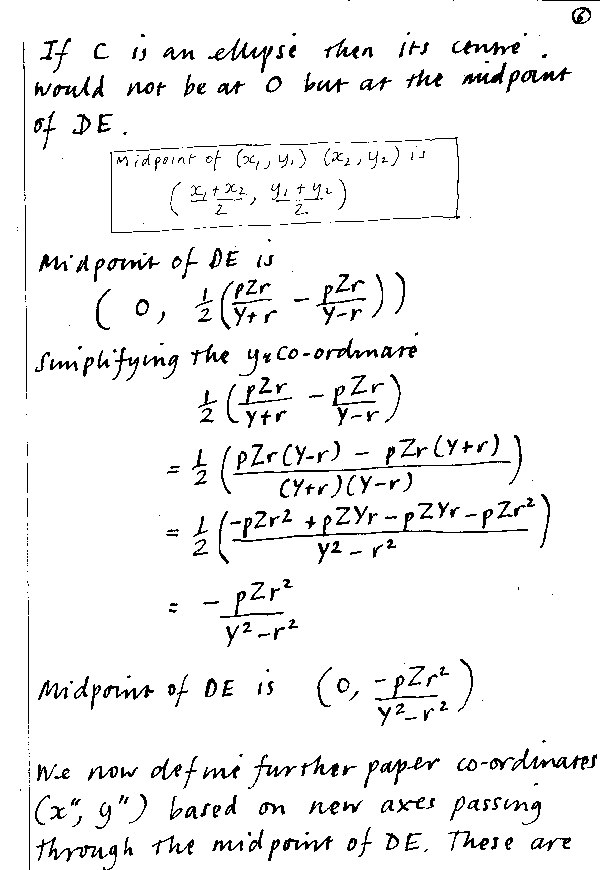 ⑥
If C is an ellipse then its centre
would not be at O but at the midpoint
of DE.
Midpoint of (x₁, y₁) (x₂, y₂) is
( (x₁ + x₂)/2, (y₁ + y₂)/2 )
Midpoint of DE is
( 0, 1/2 ( pZr/(Y+r) - pZr/(Y-r) ) )
Simplifying the y co-ordinate
1/2 ( pZr/(Y+r) - pZr/(Y-r) )
= 1/2 ( (pZr(Y-r) - pZr(Y+r)) / ((Y+r)(Y-r)) )
= 1/2 ( (-pZr² + pZYr - pZYr - pZr²) / (Y² - r²) )
= - pZr²/(Y² - r²)
Midpoint of DE is ( 0, -pZr²/(Y² - r²) )
We now define further paper co-ordinates
(x", y") based on new axes passing
through the midpoint of DE. These are